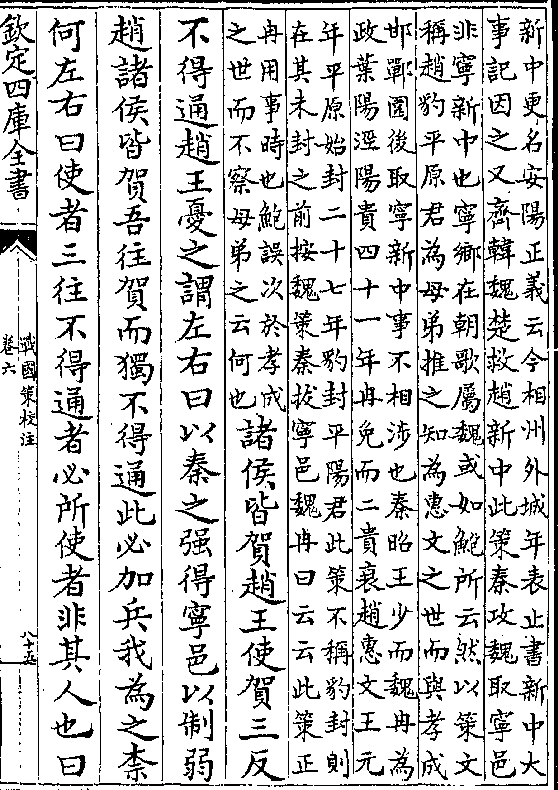 新中更名安陽正義云今相州外城年表止書新中大
事記因之又齊韓魏楚救趙新中此策秦攻魏取寧邑
非寧新中也寧鄉在朝歌屬魏或如鮑所云然以策文
稱趙豹平原君為母弟推之知為惠文之世而與孝成
邯鄲圍後取寧新中事不相涉也秦昭王少而魏冉為
政葉陽涇陽貴四十一年冉免而二貴衰趙惠文王元
年平原始封二十七年豹封平陽君此策不稱豹封則
在其未封之前按魏策秦拔寧邑魏冉曰云云此策正
冉用事時也鮑誤次於孝成
之世而不察母弟之云何也
諸侯皆賀趙王使賀三反
不得通趙王憂之謂左右曰以秦之强得寧邑以制弱
趙諸侯皆賀吾往賀而獨不得通此必加兵我為之柰
何左右曰使者三往不得通者必所使者非其人也曰
欽定四庫全書
戰國策校注
卷六
八十五